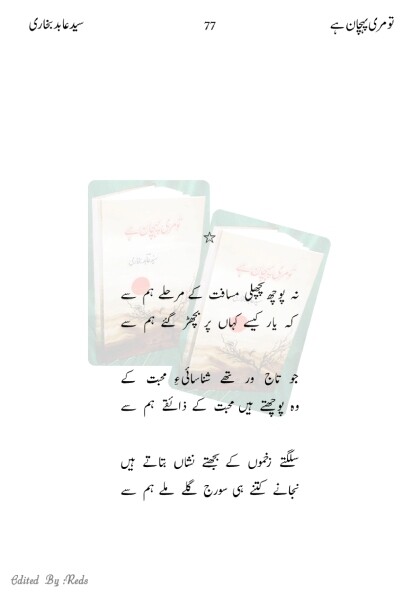 تو مری پہچان ہے 77 سید عابد بخاری
تو مری پہچان ہے
سید عابد بخاری
تو مری پہچان ہے
☆
نہ پوچھ پچھلی مسافت کے مرحلے ہم سے
کہ یار کیسے کہاں پر بچھڑ گئے ہم سے
جو تاج ور تھے شناسائیءِ محبت کے
وہ پوچھتے ہیں محبت کے ذائقے ہم سے
سلگتے زخموں کے بجھتے نشاں بتاتے ہیں
نجانے کتنے ہی سورج گلے ملے ہم سے
Edited By Reds